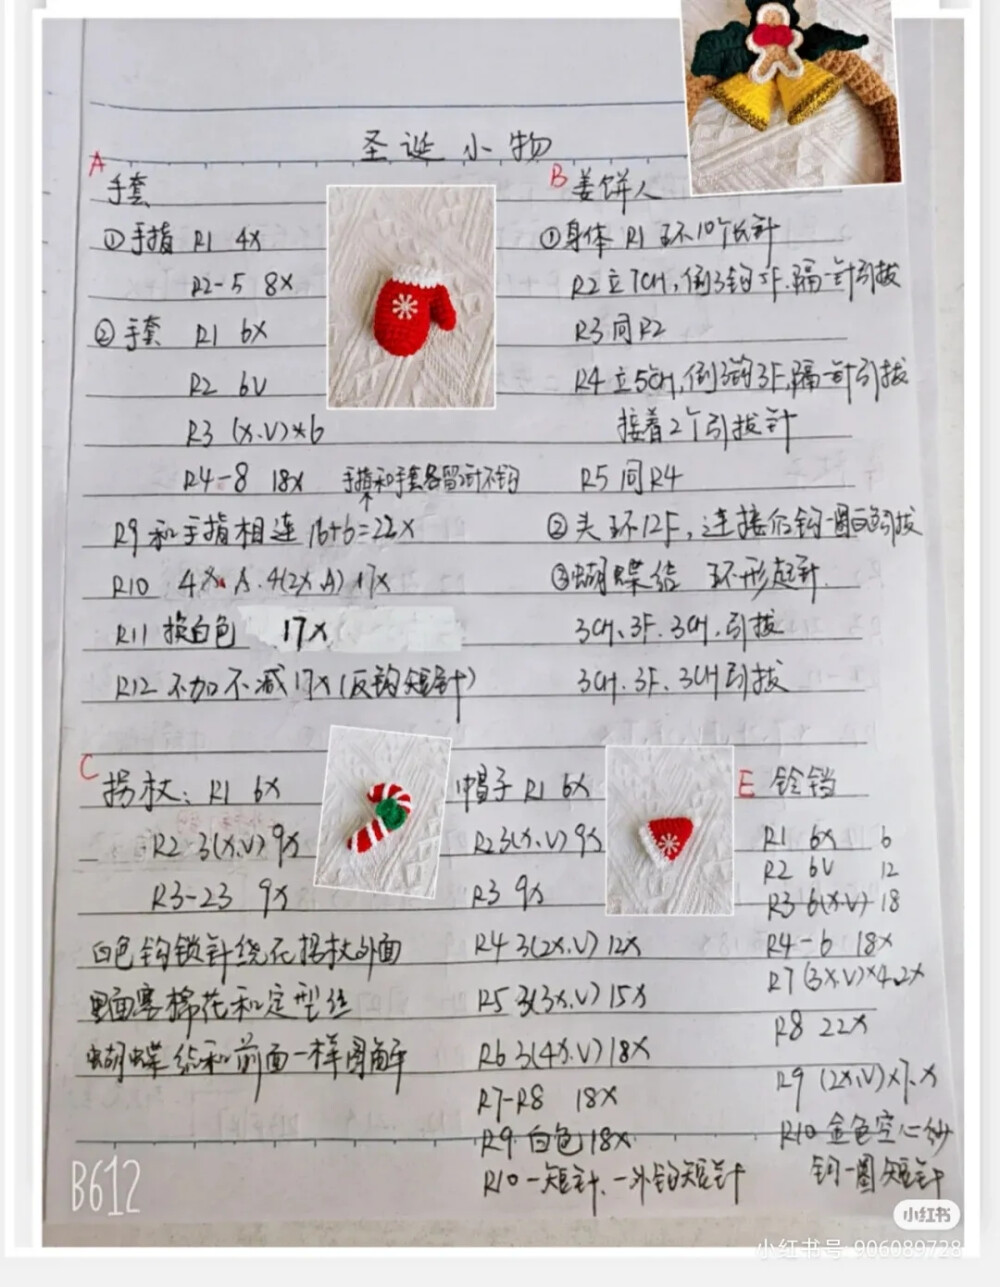 圣诞小物
A
手套
①手指 R1 4X
R2-5 8X
②手套 R1 6X
R2 6V
R3 (X.V)*6
R4-8 18X 手指和手套各留2针不钩
R9 和手指相连 16+6=22X
R10 4X.A.4(2X.A) 17X
R11 换白色 17X
R12 不加不减17X(反钩短针)
B 姜饼人
①身体 R1 环10个长针
R2 立7CH,倒3钩5F.隔一针引拔
R3 同R2
R4 立5CH,倒3钩3F,隔一针引拔
接着2个引拔针
R5 同R4
②头 环12F,连接后钩一圈白色引拔
③蝴蝶结 环形起针
3CH、3F.3CH.引拔
3CH.3F.3CH引拔
C
拐杖: R1 6X
R2 3(X.V) 9X
R3-23 9X
白色钩锁针绕在拐杖外面
里面塞棉花和定型丝
蝴蝶结和前面一样图解
帽子 R1 6X
R2 3(X.V) 9X
R3 9X
R4 3(2X.V) 12X
R5 3(3X.V) 15X
R6 3(4X.V) 18X
R7-R8 18X
R9 白色 18X
R10 一短针、一外钩短针
E 铃铛
R1 6X 6
R2 6V 12
R3 6(X.V) 18
R4-6 18X
R7 (3X.V)*4.2X
R8 22X
R9 (2X.V)×7.X
R10 金色空心纱
钩一圈短针
B612
小红书
小红书号 906089728